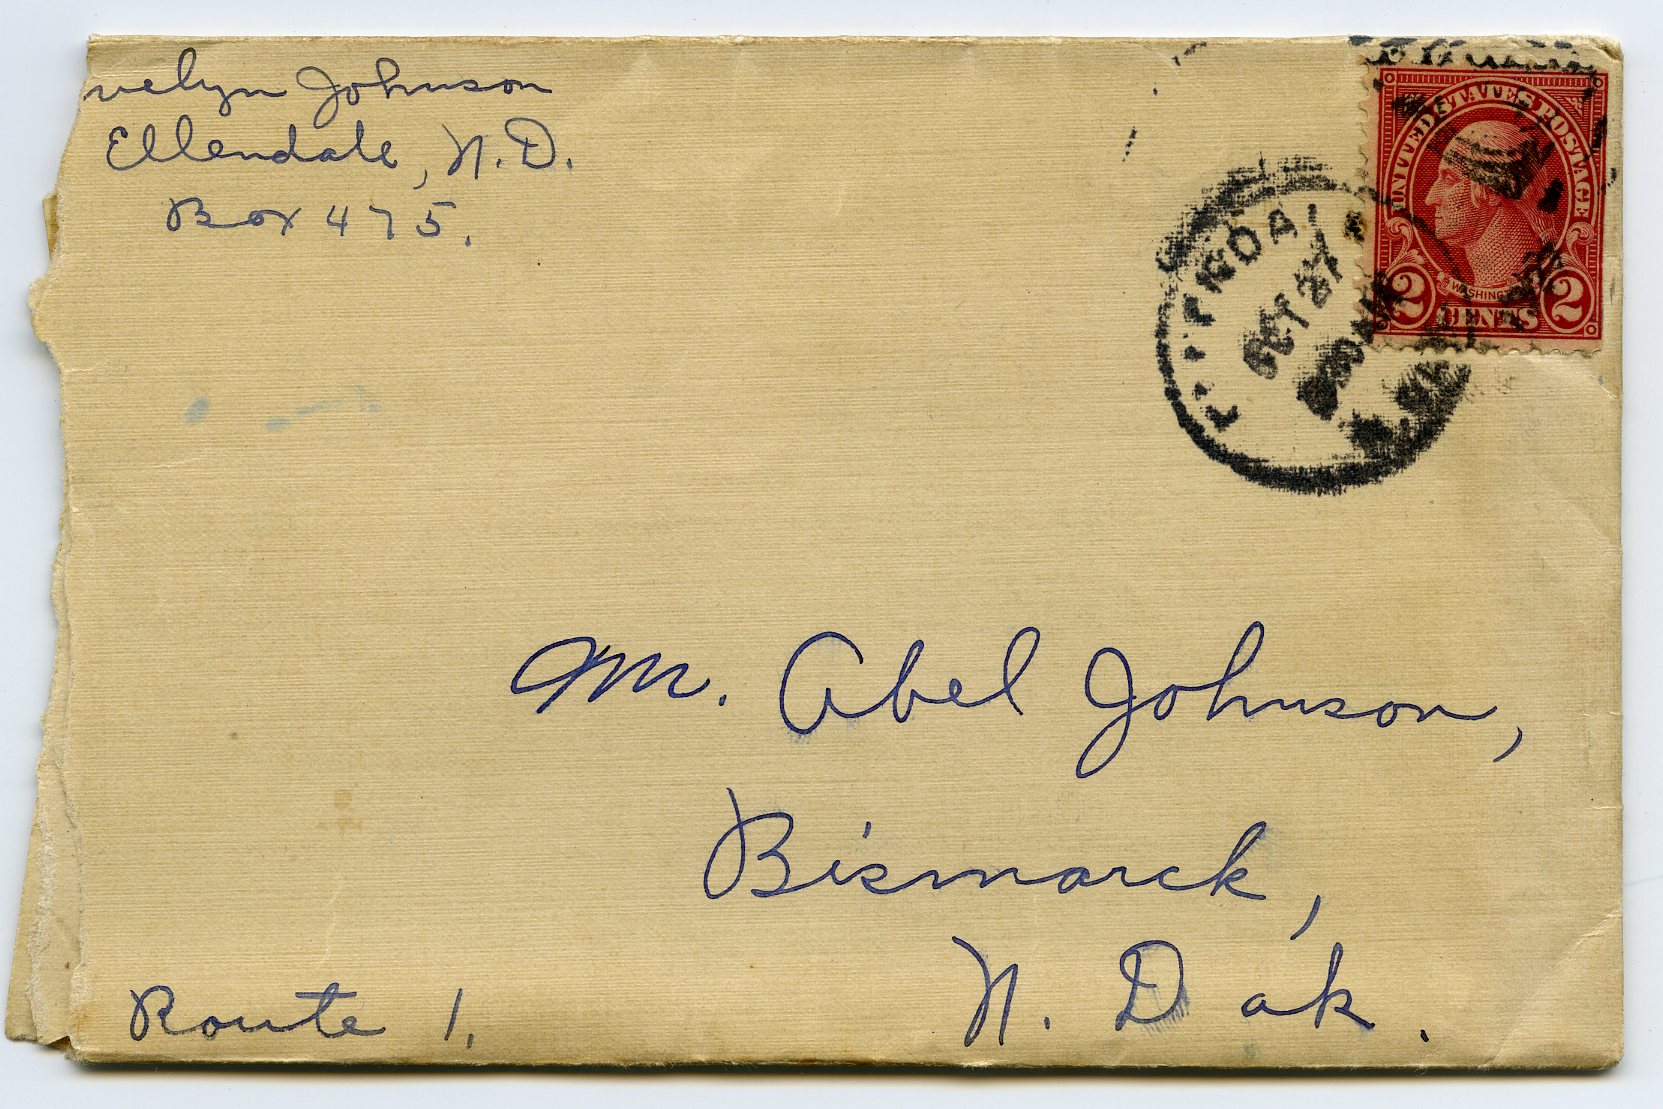 velyn Johnson
Ellendale, N.D.
Box 475.
UNITED STATES POSTAGE
WASHINGTON
2 CENTS 2
OCT 27
Mr. Abel Johnson,
Bismarck,
N. Dak.
Route 1.